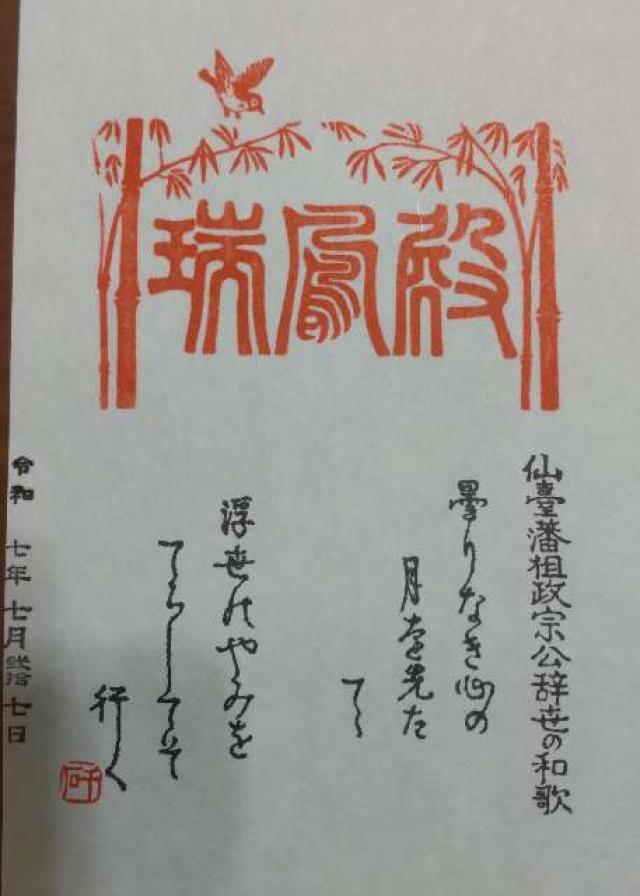 瑞鳳殿
仙臺藩祖政宗公辞世の和歌
曇りなき心の
月を先た
てゝ
浮世のやみを
てらしてそ
行く
令和 七年 七月 弐拾 七日